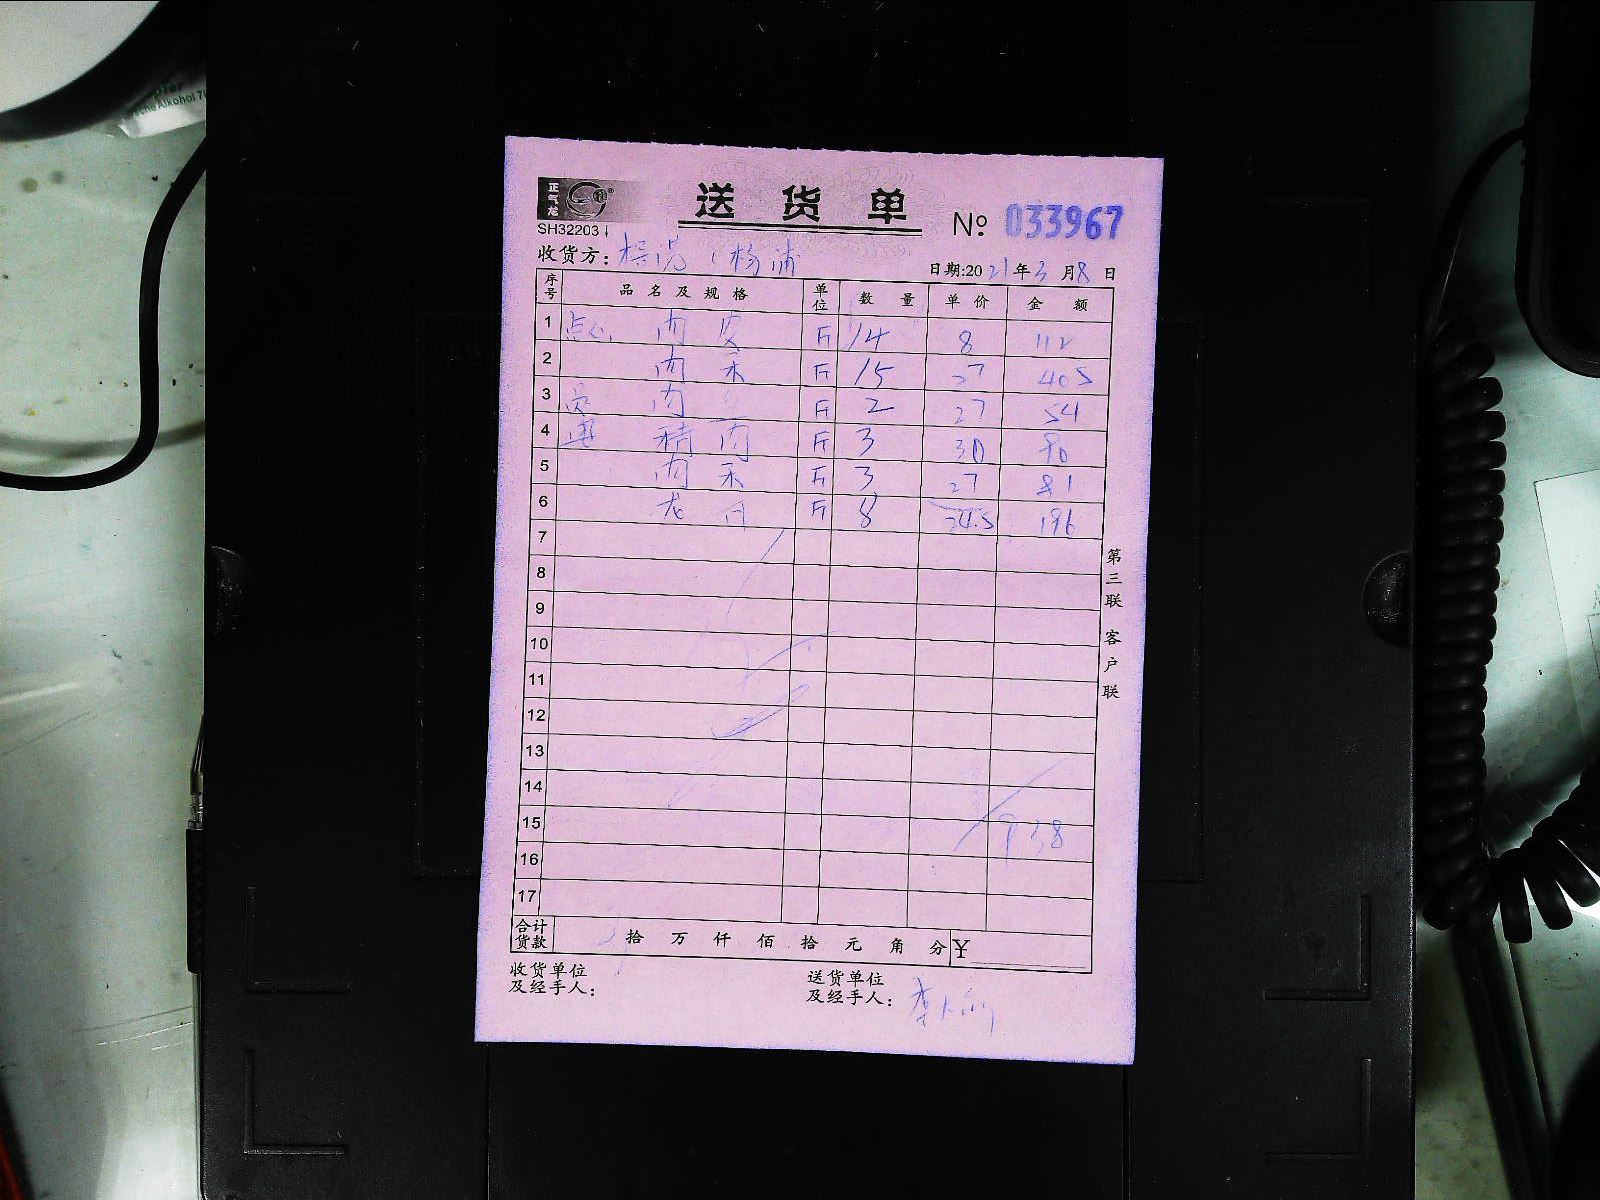 che Alkohol 70
正气龙
送货单
SH32203
№ 033967
收货方: （杨浦
日期:2021年3月8日
序号 品名及规格 单位 数量 单价 金额
1 点心 肉皮 斤 14 8 112
2 肉末 斤 15 27 405
3 肉 斤 2 27 54
4 精肉 斤 3 30 90
5 肉末 斤 3 27 81
6 斤 8 24.5 196
7
8
9
10
11
12
13
14
15 938
16
17
合计货款 拾 万 仟 佰 拾 元 角 分 ¥
收货单位及经手人:
送货单位及经手人: 李
第三联 客户联